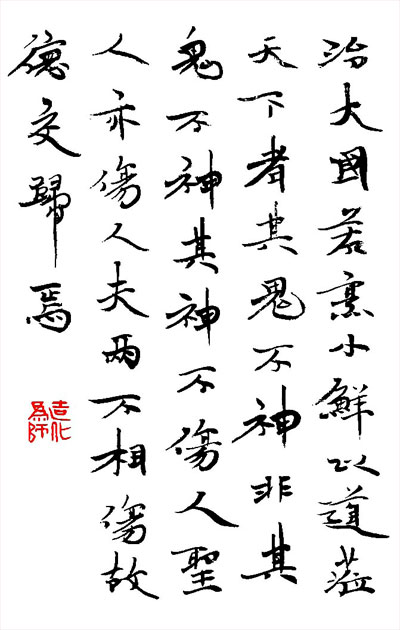 治大國若烹小鮮以道蒞
天下者其鬼不神非其
鬼不神其神不傷人聖
人亦傷人夫兩不相傷故
德交歸焉
造化為師